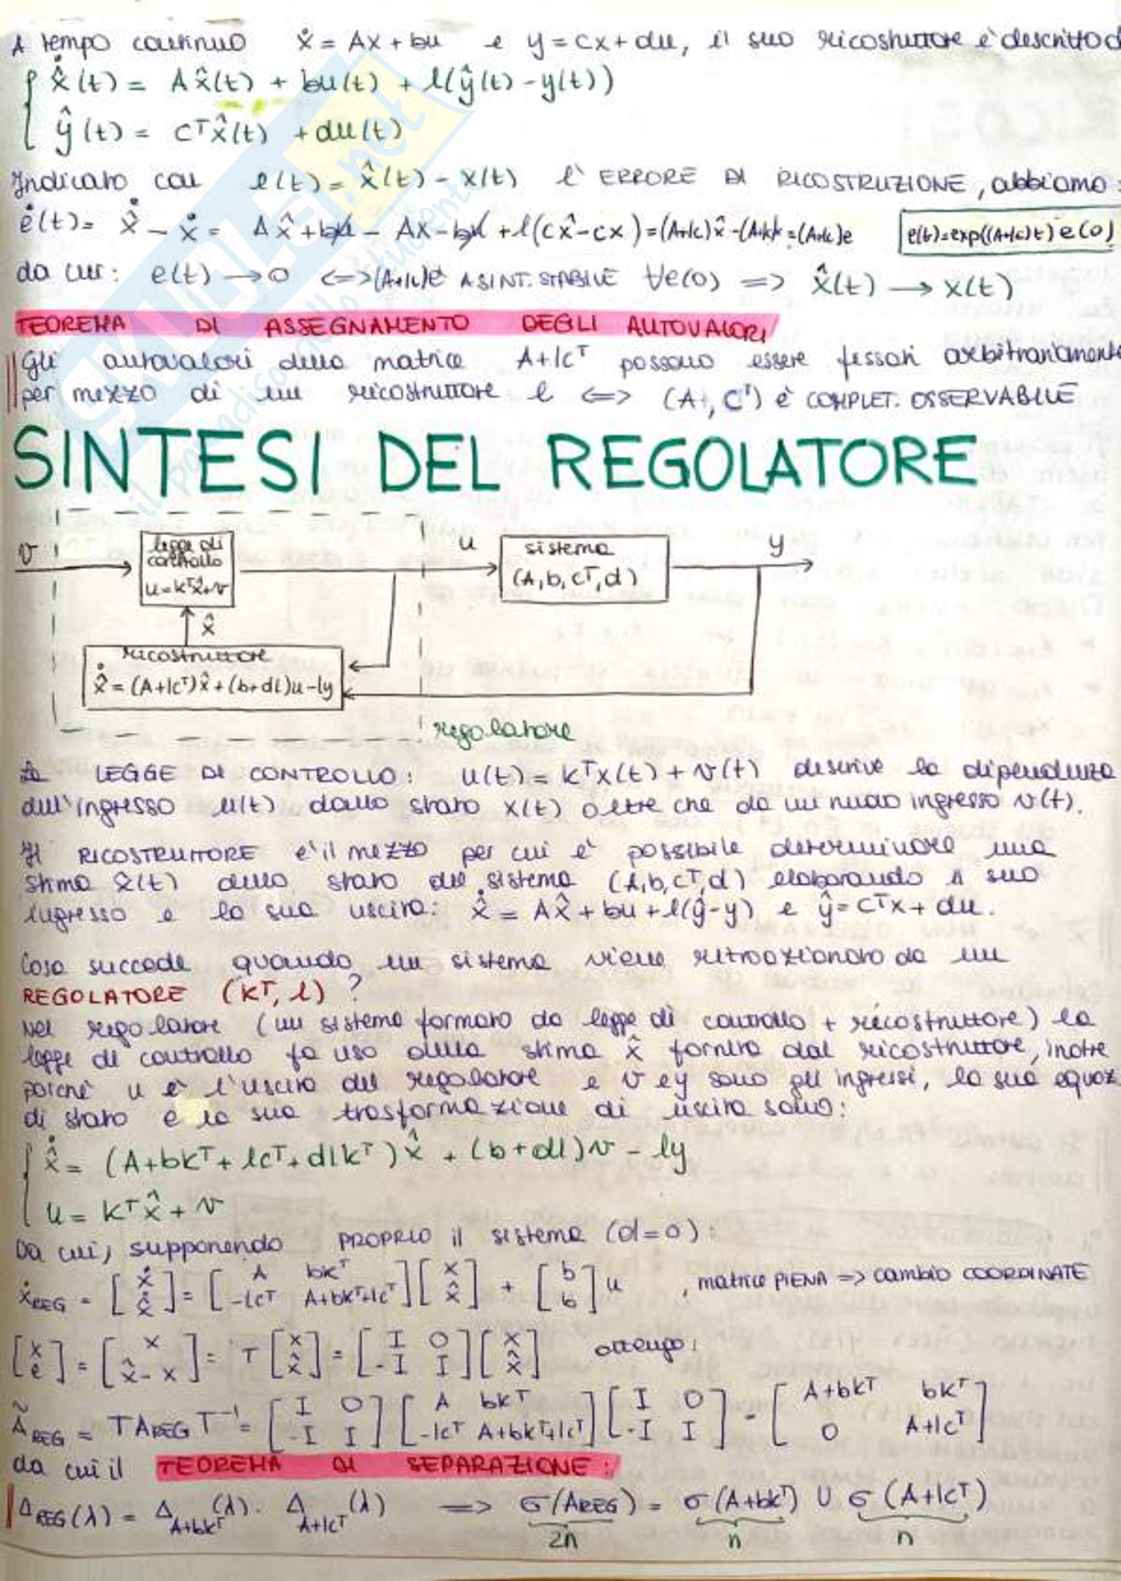 A tempo continuo ẋ = Ax + bu e y = cx + du, il suo ricostruttore è descritto d
{ x̂̇(t) = Ax̂(t) + bu(t) + l(ŷ(t) - y(t))
ŷ(t) = cᵀx̂(t) + du(t)
Indicato con e(t) = x̂(t) - x(t) l'ERRORE DI RICOSTRUZIONE, abbiamo:
ė(t) = x̂̇ - ẋ = Ax̂ + bu - Ax - bu + l(cx̂ - cx) = (A+lc)x̂ - (A+lc)x = (A+lc)e e(t)=exp((A+lc)t) e(0)
da cui: e(t) → 0 <=> (A+lc) è ASINT. STABILE ∀e(0) => x̂(t) → x(t)
TEOREMA DI ASSEGNAMENTO DEGLI AUTOVALORI
Gli autovalori della matrice A+lcᵀ possono essere fissati arbitrariamente
per mezzo di un ricostruttore l <=> (A, cᵀ) è COMPLET. OSSERVABILE
SINTESI DEL REGOLATORE
v
legge di controllo
u = kᵀx̂+v
u
sistema
(A, b, cᵀ, d)
y
x̂
ricostruttore
x̂̇ = (A+lcᵀ)x̂ + (b+dl)u - ly
regolatore
La LEGGE DI CONTROLLO: u(t) = kᵀx(t) + v(t) descrive la dipendenza
dell'ingresso u(t) dallo stato x(t) oltre che da un nuovo ingresso v(t).
Il RICOSTRUTTORE è il mezzo per cui è possibile determinare una
stima x̂(t) dello stato del sistema (A, b, cᵀ, d) elaborando il suo
ingresso e la sua uscita: x̂̇ = Ax̂ + bu + l(ŷ-y) e ŷ = cᵀx + du.
Cosa succede quando un sistema viene retroazionato da un
REGOLATORE (kᵀ, l) ?
Nel regolatore (un sistema formato da legge di controllo + ricostruttore) la
legge di controllo fa uso della stima x̂ fornita dal ricostruttore, inoltre
poiché u è l'uscita del regolatore e v e y sono gli ingressi, la sua equaz
di stato e la sua trasformazione di uscita sono:
{ x̂̇ = (A+bkᵀ+lcᵀ+dlkᵀ)x̂ + (b+dl)v - ly
u = kᵀx̂ + v
Da cui, supponendo PROPRIO il sistema (d=0):
ẋREG = [ẋ x̂̇] = [A bkᵀ -lcᵀ A+bkᵀ+lcᵀ] [x x̂] + [b b] u , matrice PIENA => cambio COORDINATE
[x e] = [x x̂-x] = T [x x̂] = [I 0 -I I] [x x̂] ottengo:
ÃREG = T AREG T⁻¹ = [I 0 -I I] [A bkᵀ -lcᵀ A+bkᵀ+lcᵀ] [I 0 -I I] = [A+bkᵀ bkᵀ 0 A+lcᵀ]
da cui il TEOREMA DI SEPARAZIONE:
ΔREG(λ) = ΔA+bkᵀ(λ) · ΔA+lcᵀ(λ) => σ(AREG) = σ(A+bkᵀ) ∪ σ(A+lcᵀ)
2n n n